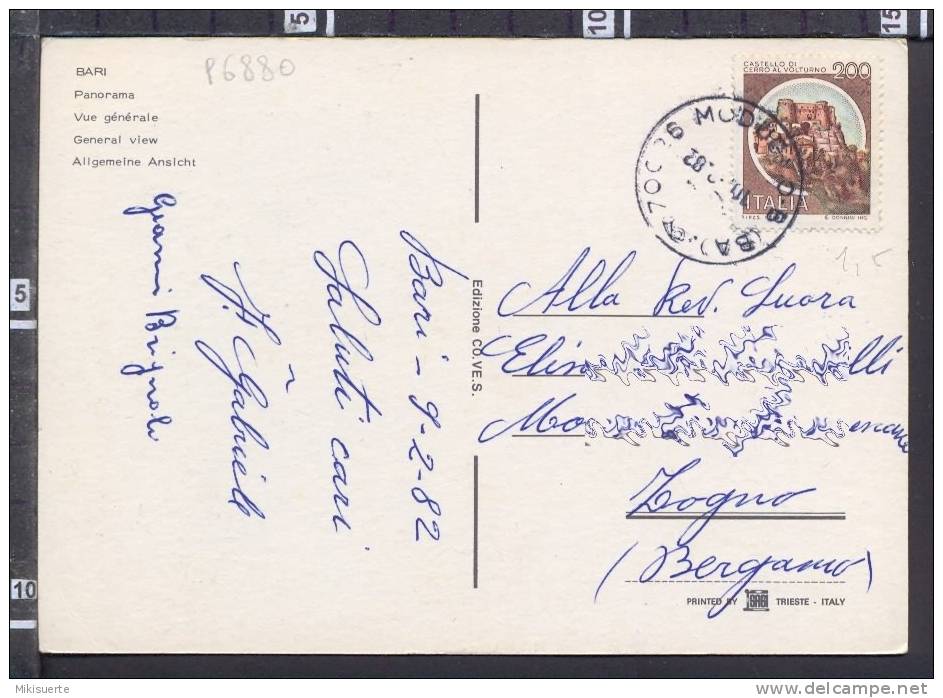 BARI
Panorama
Vue générale
General view
Allgemeine Ansicht
P6880
CASTELLO DI
CERRO AL VOLTURNO 200
ITALIA
70026 MODUGNO (BA)
1,5
Bari - 9-2-82
Saluti cari
Gianni Brignoli
Edizione CO.VE.S.
Alla Rev. Suora
Zogno
(Bergamo)
PRINTED BY SAGI TRIESTE - ITALY
5
10
15
5
10
Mikisuerte
delcampe.net